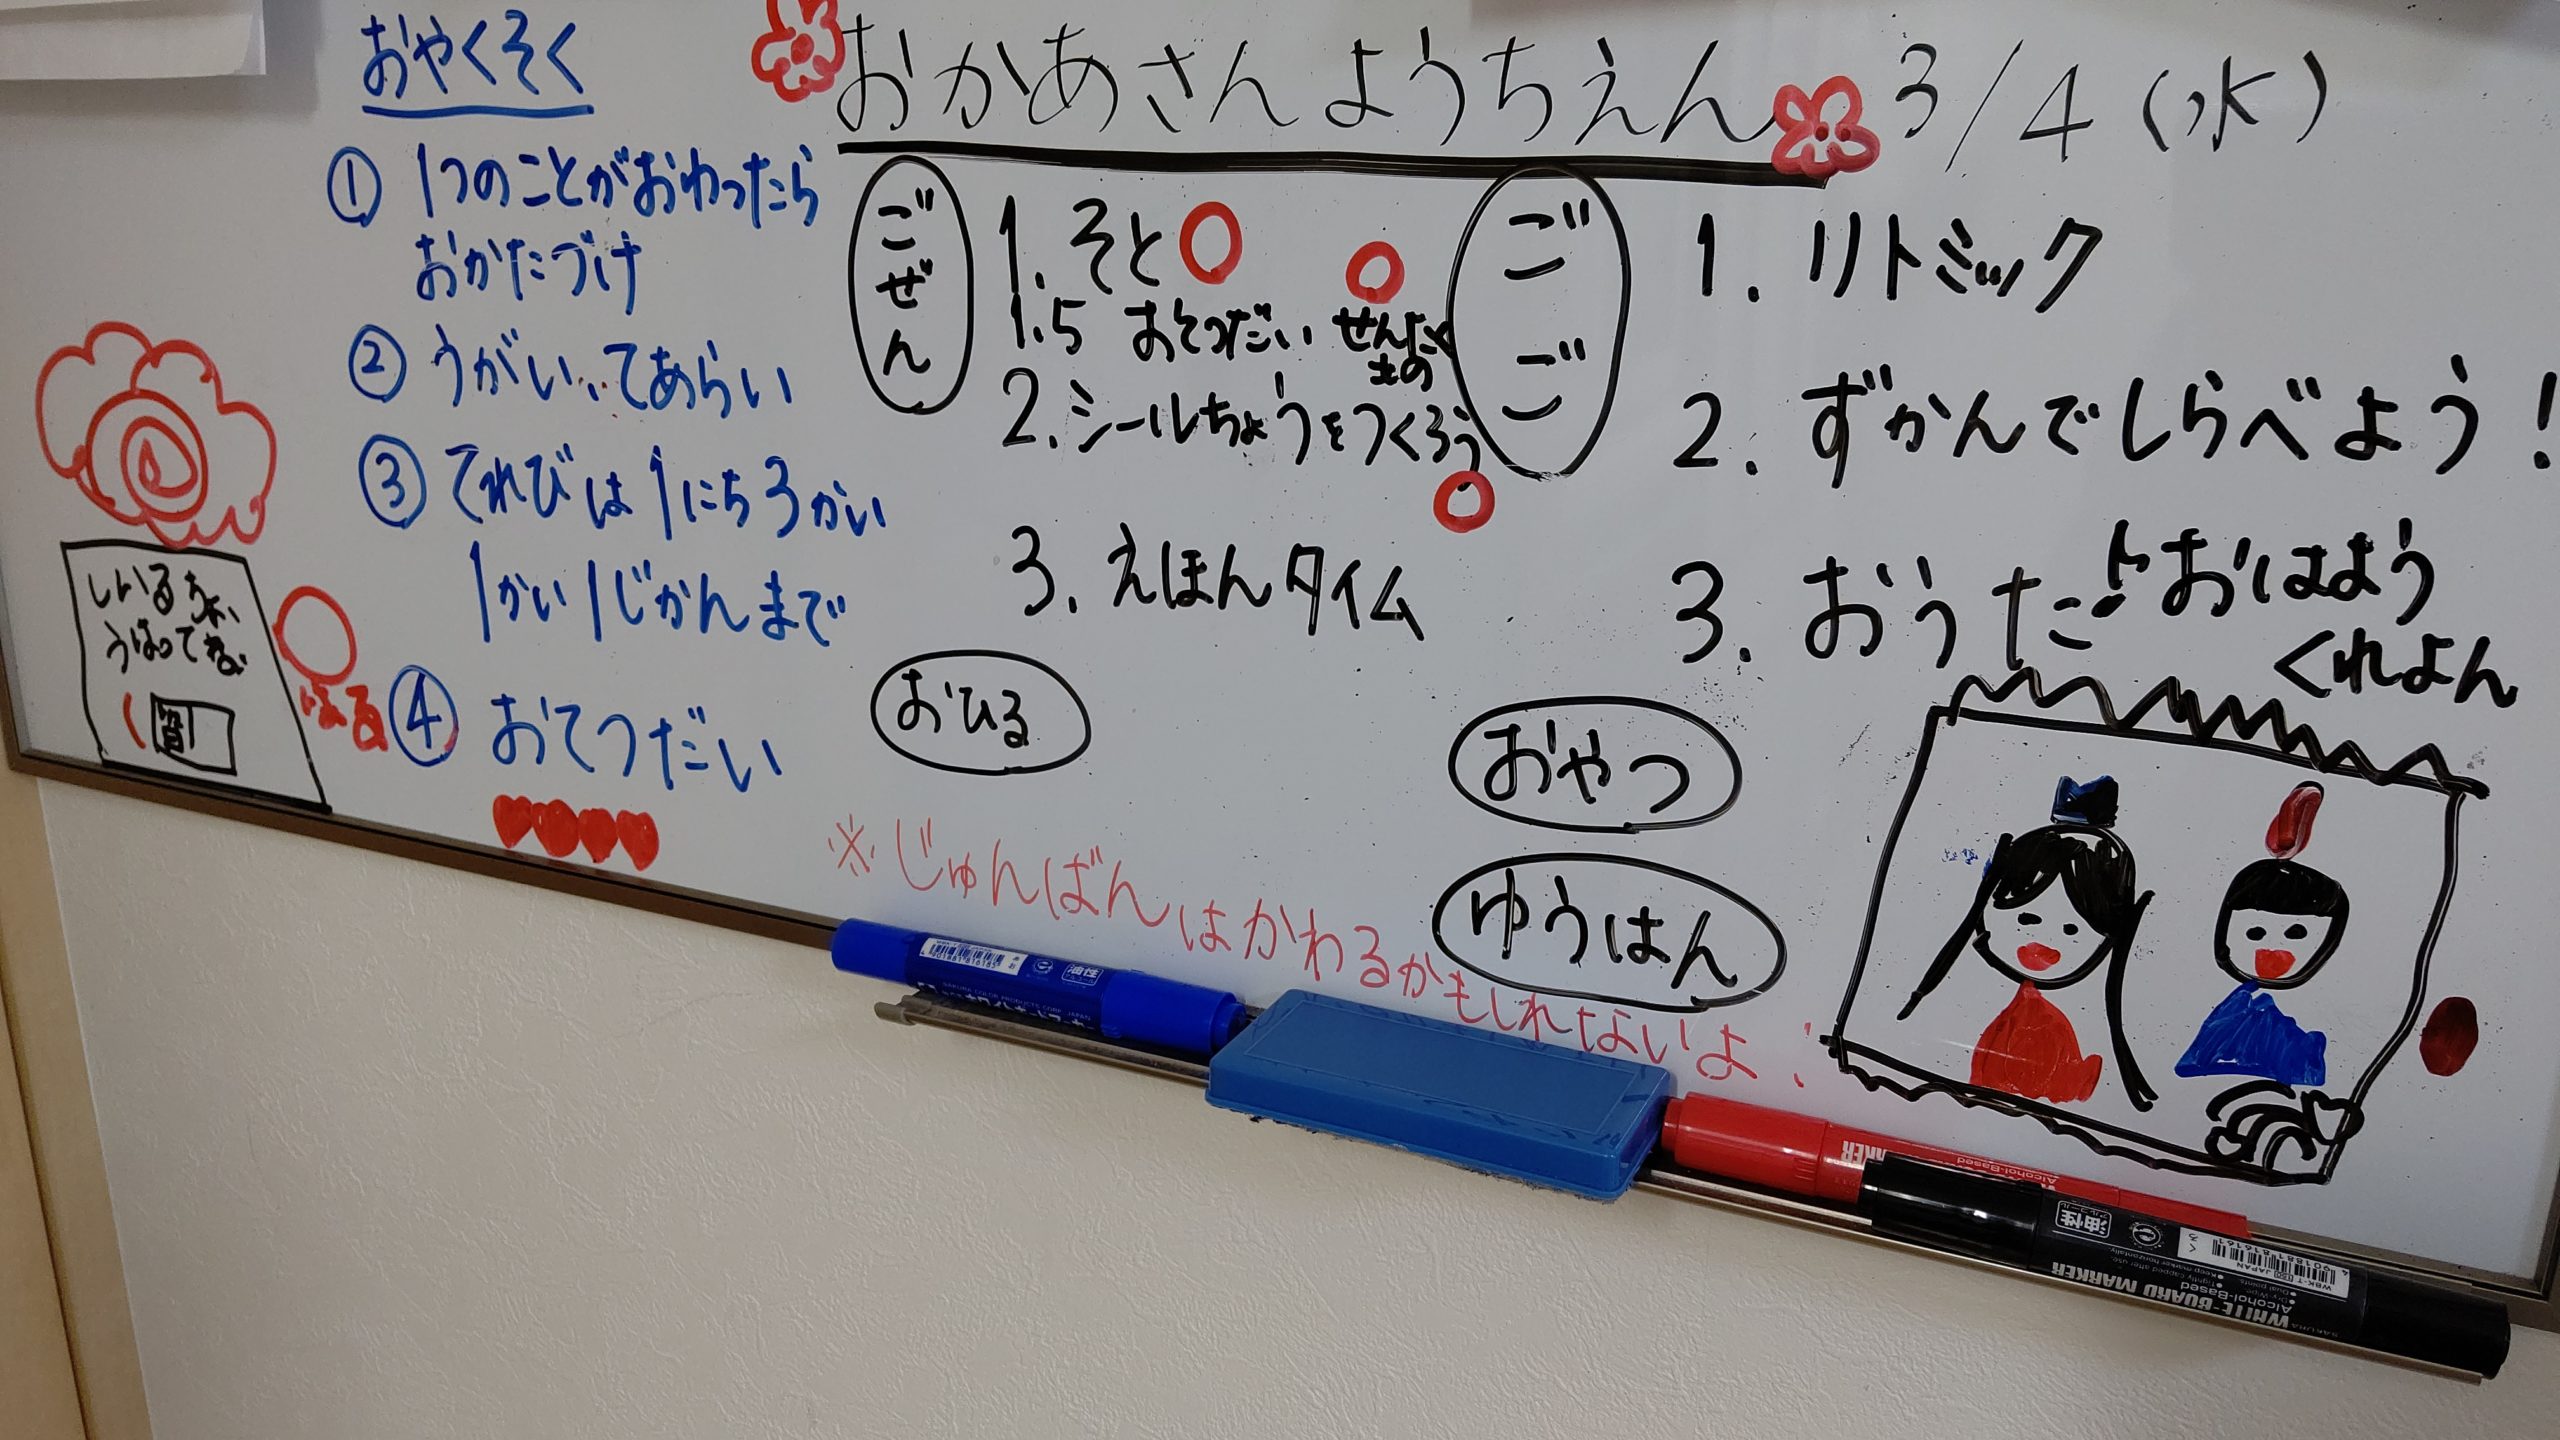 おやくそく
① 1つのことがおわったら
おかたづけ
② うがい、てあらい
③ てれびは1にち3かい
1かい1じかんまで
④ おてつだい
おかあさんようちえん 3/4(水)
ごぜん
1. そと
1.5 おてつだい せんたく
もの
2. シールちょうをつくろう
3. えほんタイム
おひる
ごご
1. リトミック
2. ずかんでしらべよう!
3. おうた♪おはよう
くれよん
おやつ
ゆうはん
※じゅんばんはかわるかもしれないよ!
しいるちょ
うはってね
はる
油性
SAKURA COLOR PRODUCTS CORP. JAPAN
4901881816185
あお
MARKER
Alcohol-Based
WHITE BOARD MARKER
Alcohol-Based
油性
アルコール
WBK-T 150 JAPAN
くろ